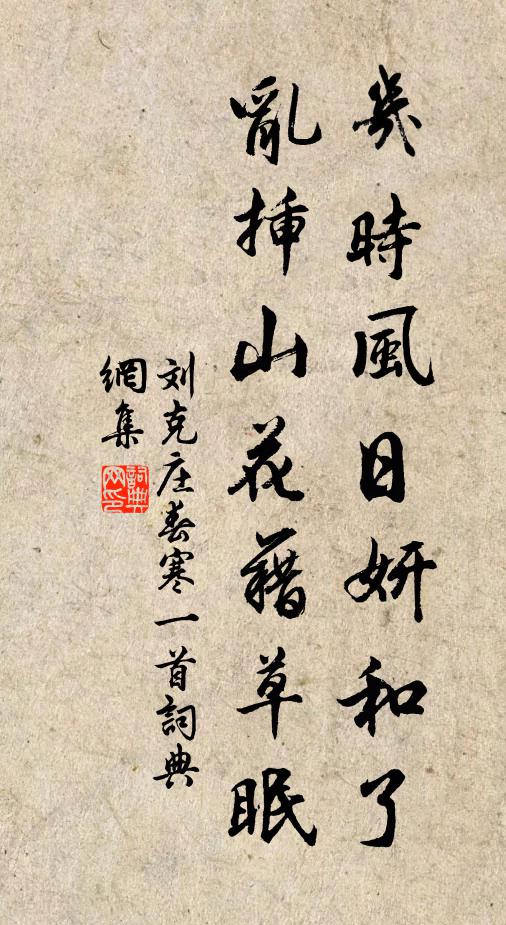 幾時風日妍和了
亂挿山花藉草眠
刘克庄春寒一首詞典
網集
詞典
网印